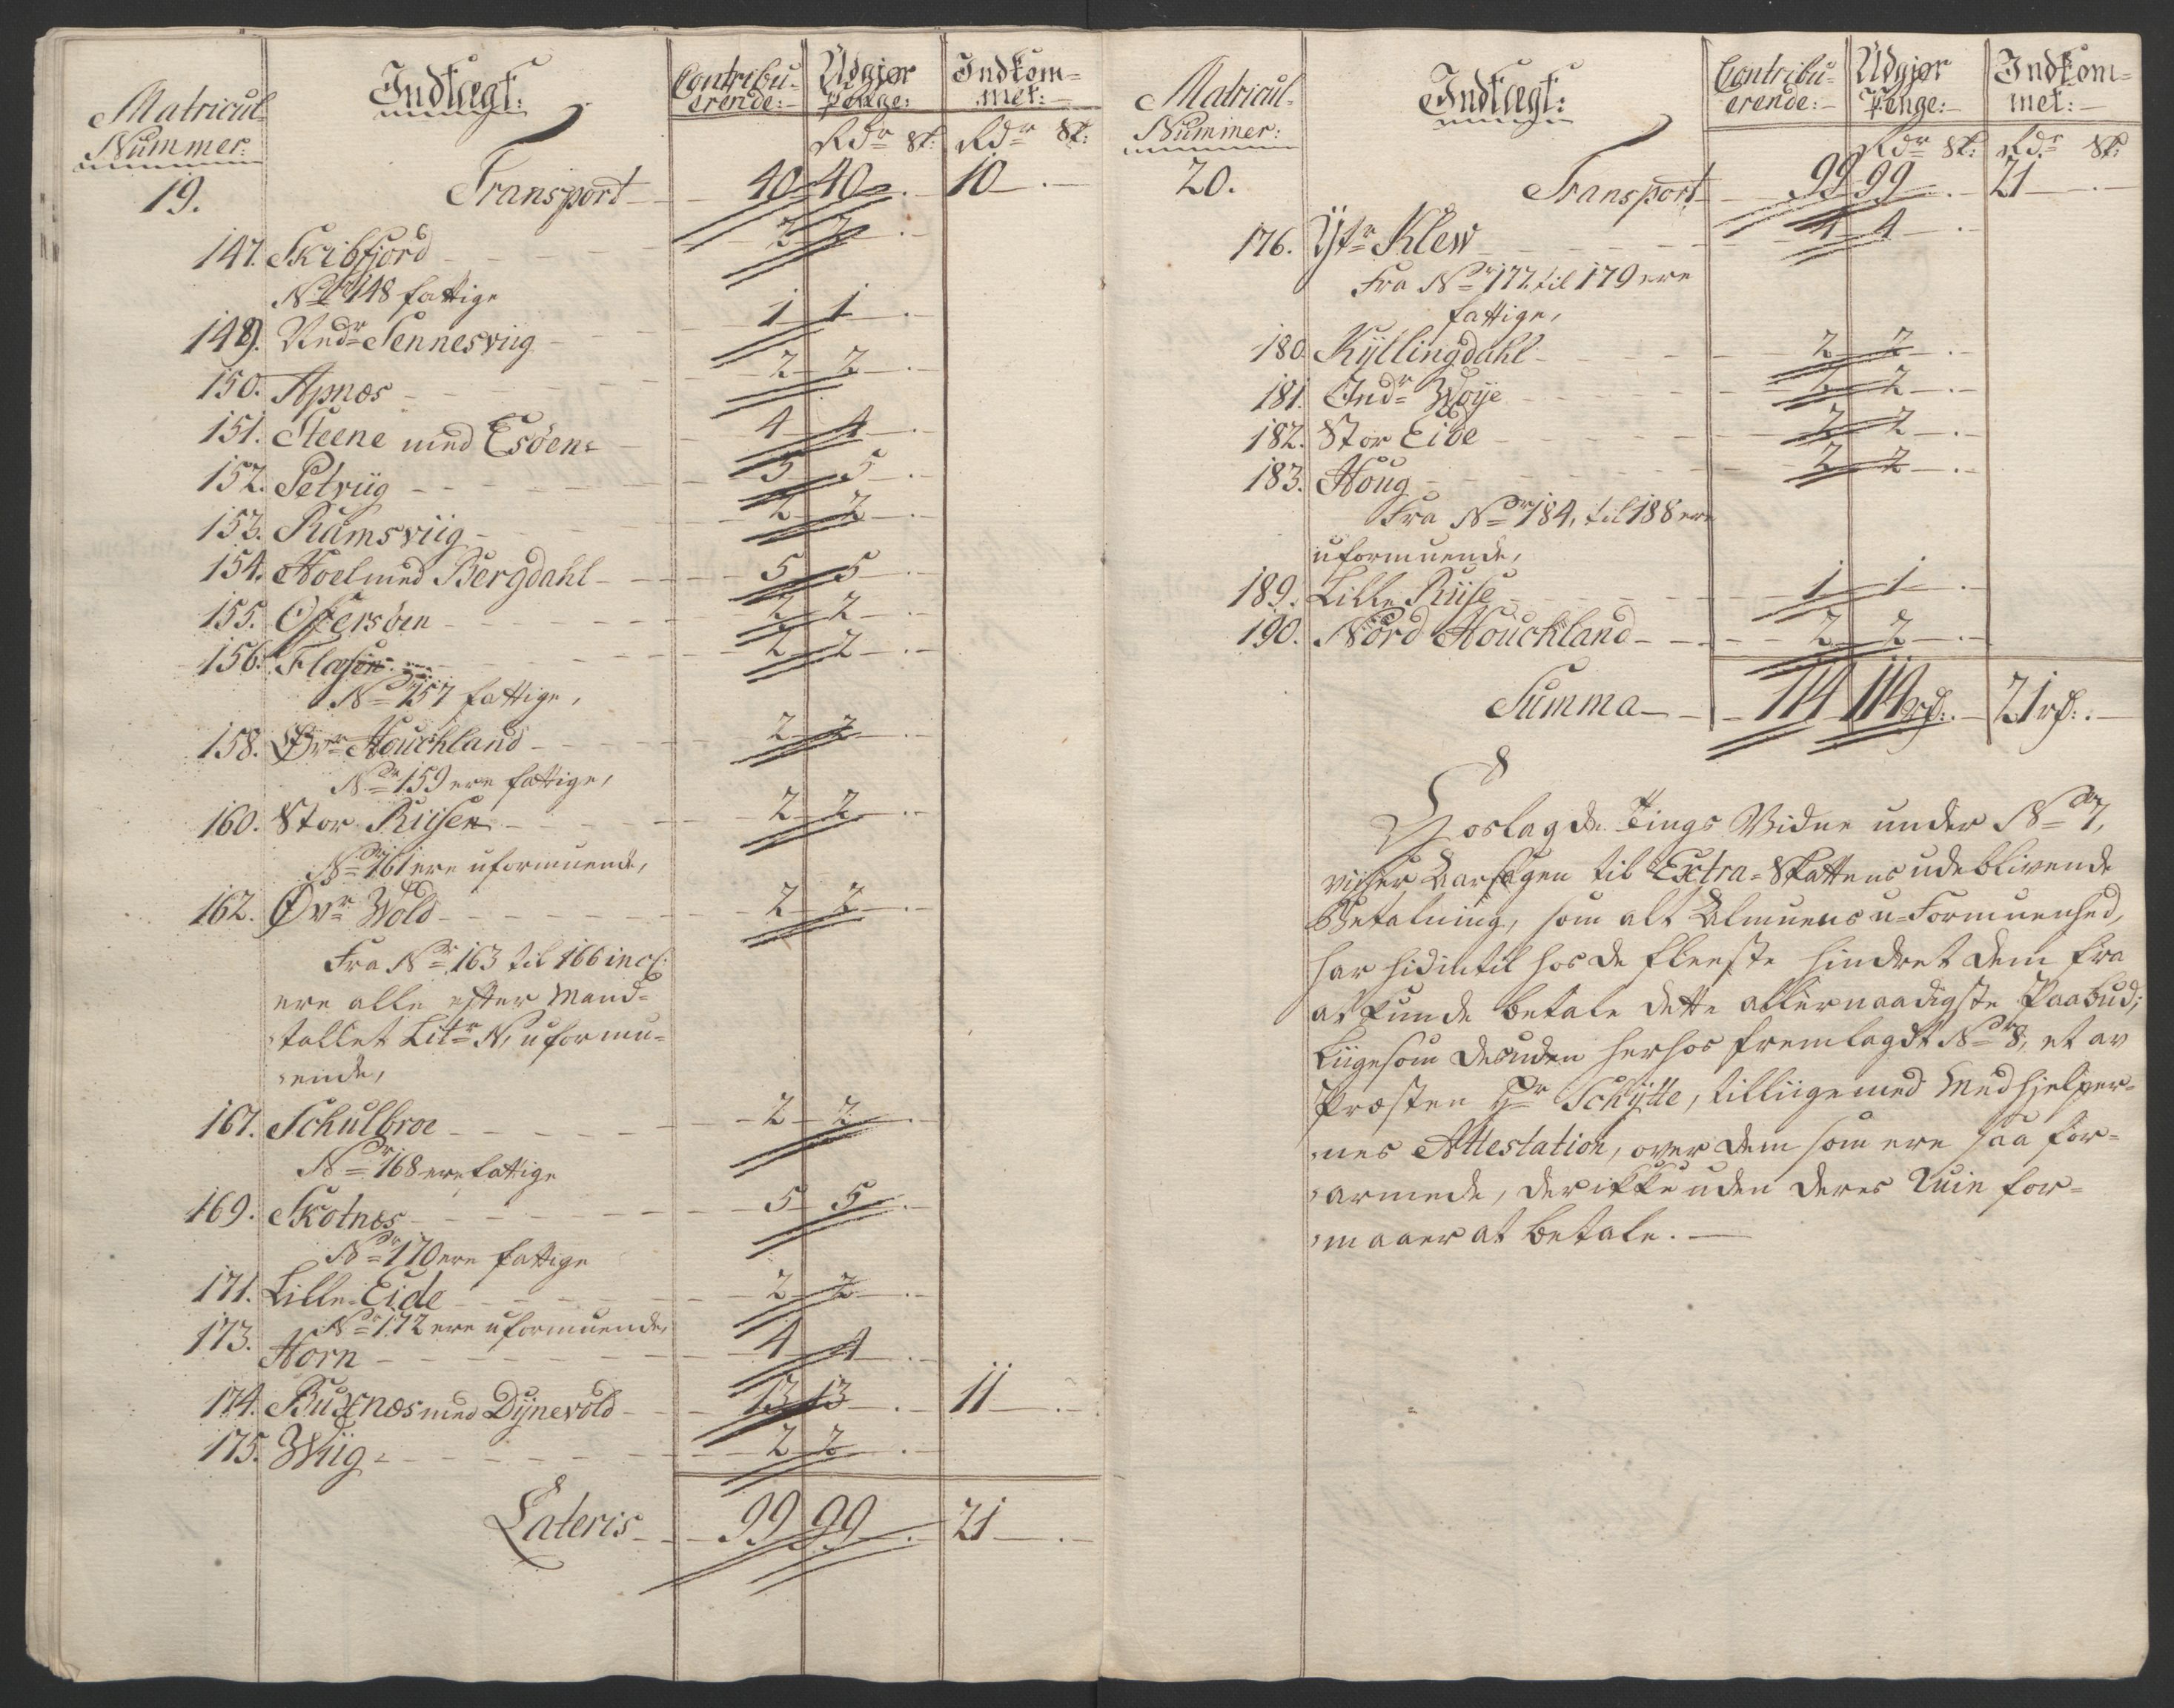 Matricul Nummer: Indtægt: Contribuerende: Udgjør Penge: Indkommet:
Rdr S: Rdr S:
19. Transport 40 40 10
147. Skibfjord 2 2
Nr 148 fattige
149. Nedr Sennesviig 1 1
150. Apnæs 2 2
151. Steene med Esöen 4 4
152. Petviig 5 5
153. Ramsviig 2 2
154. Hoel med Bergdahl 5 5
155. Offersöen 2 2
156. Flæsen 2 2
Nr 157 fattige,
158. Øvr Houchland 2 2
Nr 159 ere fattige,
160. Stor Riisen 2 2
Nr 161 ere uformuende,
162. Øvr Wold 2 2
Fra Nr 163 til 166 incl:
ere alle efter Mand-
tallet Litr N, uformu-
ende,
167. Schulbroe 2 2
Nr 168 ere fattige
169. Skotnæs 5 5
Nr 170 ere fattige
171. Lille Eide 2 2
Nr 172 ere uformuende,
173. Horn 4 4
174. Buxnæs med Dÿnevold 13 13 11
175. Wiig 2 2
Lateris 99 99 21
Matricul Nummer: Indtægt: Contribuerende: Udgjør Penge: Indkommet:
Rdr S: Rdr S:
20. Transport 99 99 21
176. Ytr Klew 4 4
Fra Nr 177 til 179 ere
fattige,
180. Kÿllingdahl 2 2
181. Indr Woÿe 2 2
182. Stor Eide 2 2
183. Houg 2 2
Fra Nr 184, til 188 ere
uformuende,
189. Lille Riise 1 1
190. Nord Houckland 2 2
Summa 114 114 rd: 21 rd:
Hoslagde Tings Vidne under Nr 7,
viiser Aarsagen til Extra-Skattens udeblivende
Betalning, som alt Almuens u-Formuenhed,
har hidintil hos de fleeste hindret dem fra
at kunde betale dette allernaadigste Paabud;
Liigesom desuden herhos fremlagdt Nr 8, et av
Præsten Hr Schÿtte, tilliigemed Medhielper-
nes Attestation, over dem som ere saa for-
armede, der ikke uden deres Ruin for-
maaer at betale.